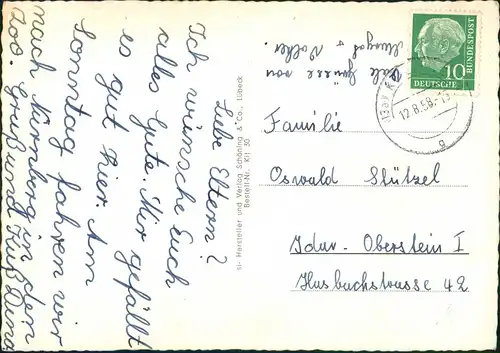 Liebe Eltern?
Ich wünsche Euch
alles Gute. Mir gefällt
es gut hier. Am
Sonntag fahren wir
nach Nürnberg in den
Zoo. Gruß und Kuß
Viele Grüsse von
Volker.
si- Hersteller und Verlag Schöning & Co., Lübeck
Bestell-Nr. Kit 30
DEUTSCHE
BUNDESPOST
10
12.8.58.-15
a
Familie
Oswald Stützel
Idar-Oberstein I
Hasbachstrasse 42